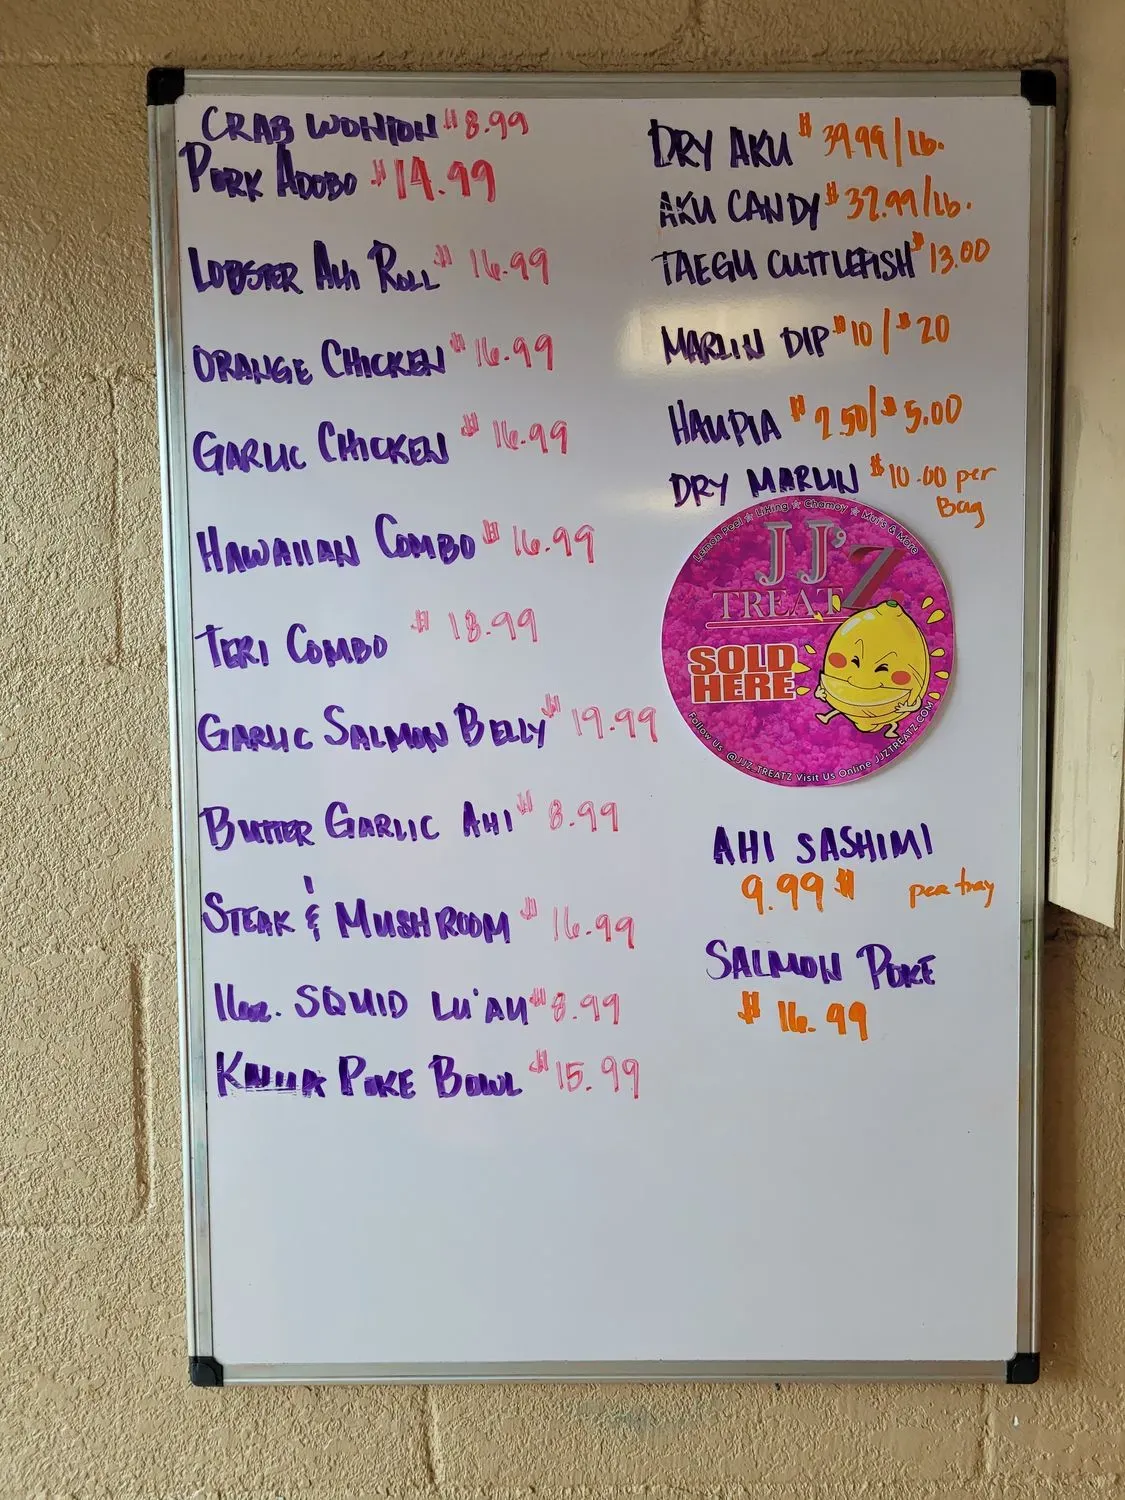 CRAB WONTON $8.99
PORK ADOBO $14.99
LOBSTER AHI ROLL $16.99
ORANGE CHICKEN $16.99
GARLIC CHICKEN $16.99
HAWAIIAN COMBO $16.99
TERI COMBO $18.99
GARLIC SALMON BELLY $19.99
BUTTER GARLIC AHI $8.99
STEAK & MUSHROOM $16.99
16oz. SQUID LU'AU $8.99
POKE BOWL $15.99
DRY AKU $39.99/Lb.
AKU CANDY $37.99/Lb.
TAEGU CUTTLEFISH $13.00
MARLIN DIP $10/$20
HAUPIA $2.50/$5.00
DRY MARLIN $10.00 per
Bag
Lemon Peel ☆ LiHing ☆ Chamoy ☆ Mui's & More
JJ'Z
TREATZ
SOLD
HERE
Follow Us @JJZ_TREATZ Visit Us Online JJZTREATZ.COM
AHI SASHIMI
9.99$ per tray
SALMON POKE
$16.99